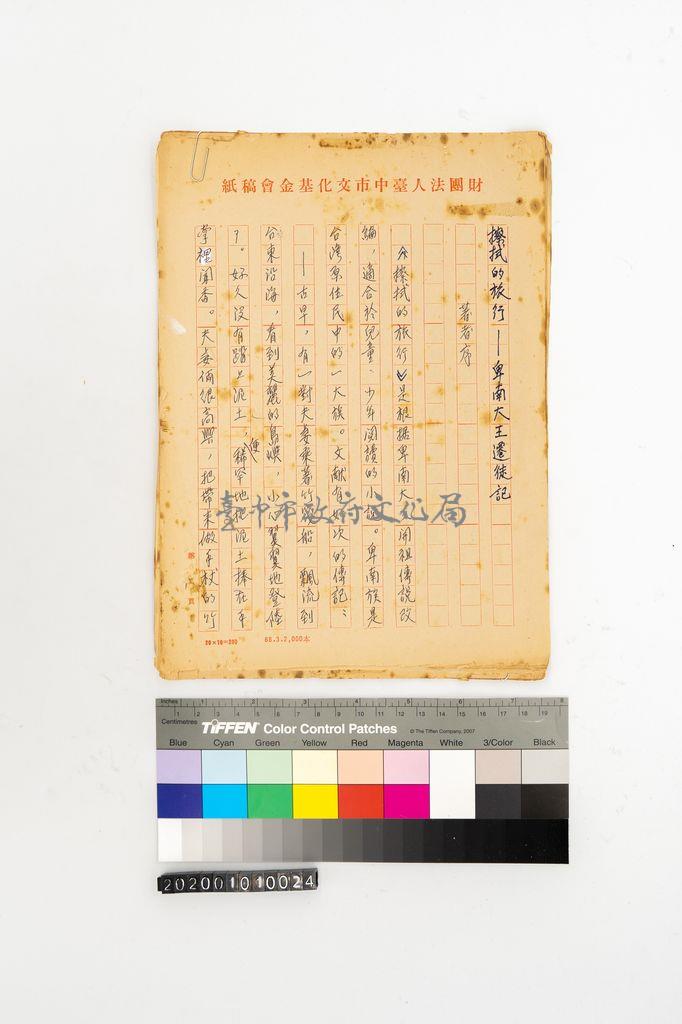 財團法人臺中市文化基金會稿紙
擦拭的旅行——卑南大王遷徙記
著者序
《擦拭的旅行》是根据卑南大王開祖傳說改
編，適合於兒童、少年閱讀的小說。卑南族是
台灣原住民中的一大族。文献有如次的傳記：
——古早，有一對夫妻乘著竹筏船，飄流到
台東沿海，看到美麗的島嶼，小心翼翼地登陸
。好久沒有踏上泥土，便稀罕地把泥土捧在手
掌裡聞香。夫妻倆很高興，把帶來做手杖的竹
第 頁
20×10=200
88.3.2,000本
臺中市政府文化局
Inches 1 2 3 4 5 6 7 8
Centimetres 1 2 3 4 5 6 7 8 9 10 11 12 13 14 15 16 17 18 19
TIFFEN Color Control Patches
© The Tiffen Company, 2007
Blue Cyan Green Yellow Red Magenta White 3/Color Black
202001010024